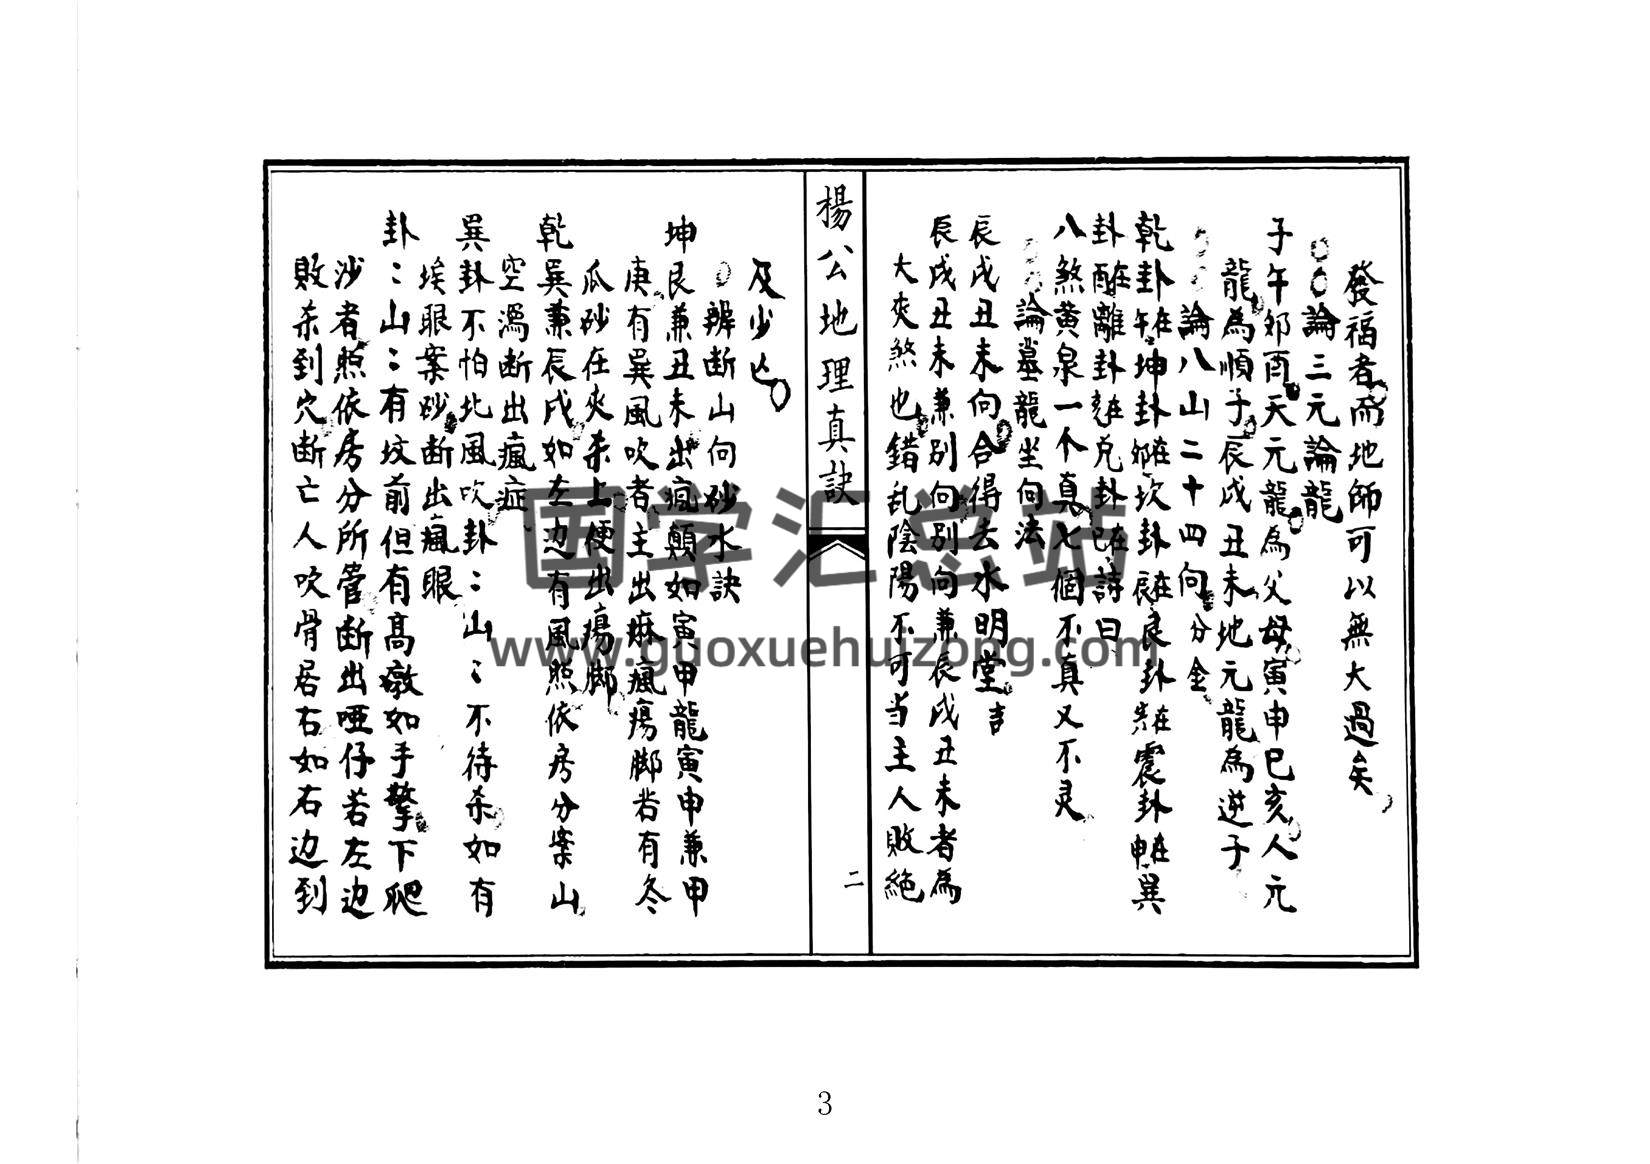 發福者而地師可以無大過矣
論三元論龍
子午卯酉天元龍為父母寅申巳亥人元
龍為順子辰戌丑未地元龍為逆子
論八山二十四向分金
乾卦在午坤卦在卯坎卦在辰艮卦在寅震卦在申巽
卦在酉離卦在亥兌卦在巳詩曰
八煞黄泉一个真七個不真又不灵
論墓龍坐向法
辰戌丑未向合得去水明堂吉
辰戌丑未兼别向别向兼辰戌丑未者為
大夾煞也錯乱陰陽不可当主人敗絕
楊公地理真訣
二
及少亡
辨断山向砂水訣
坤艮兼丑未出瘋顛如寅甲龍寅申兼甲
庚有巽風吹者主出痳瘋瘍脚若有冬
瓜砂在夾杀上便出瘍脚
乾巽兼辰戌如左边有風照依房分案山
空瀉断出瘋症
巽卦不怕北風吹卦：山：不待杀如有
埃眼案砂断出瘋眼
卦：山：有坟前但有高墩如手擎下爬
沙者照依房分所管断出哑仔若左边
敗杀到穴断亡人吹骨居右如右边到
国学汇总站
www.guoxuehuizong.com
3